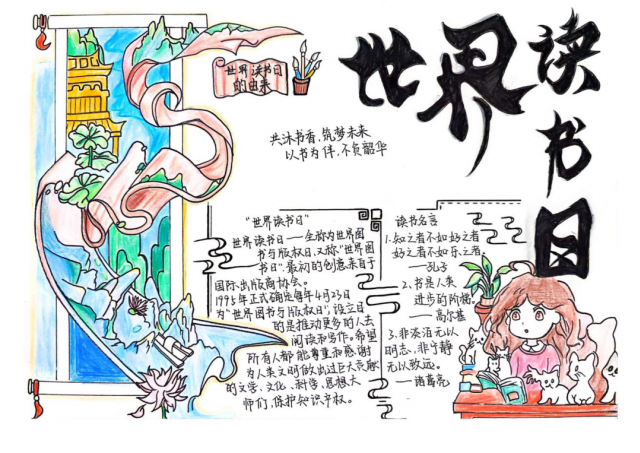 世界读书日
世界读书日
的由来
共沐书香,筑梦未来
以书为伴,不负韶华
"世界读书日"
世界读书日——全称为世界图
书与版权日,又称"世界图
书日",最初的创意来自于
国际出版商协会。
1995年正式确定每年4月23日
为"世界图书与版权日",设立目
的是推动更多的人去
阅读和写作。希望
所有人都能尊重和感谢
为人类文明做出过巨大贡献
的文学、文化、科学、思想大
师们,保护知识产权。
读书名言
1.知之者不如好之者
好之者不如乐之者
——孔子
2.书是人类
进步的阶梯。
——高尔基
3.非淡泊无以
明志,非宁静
无以致远。
——诸葛亮